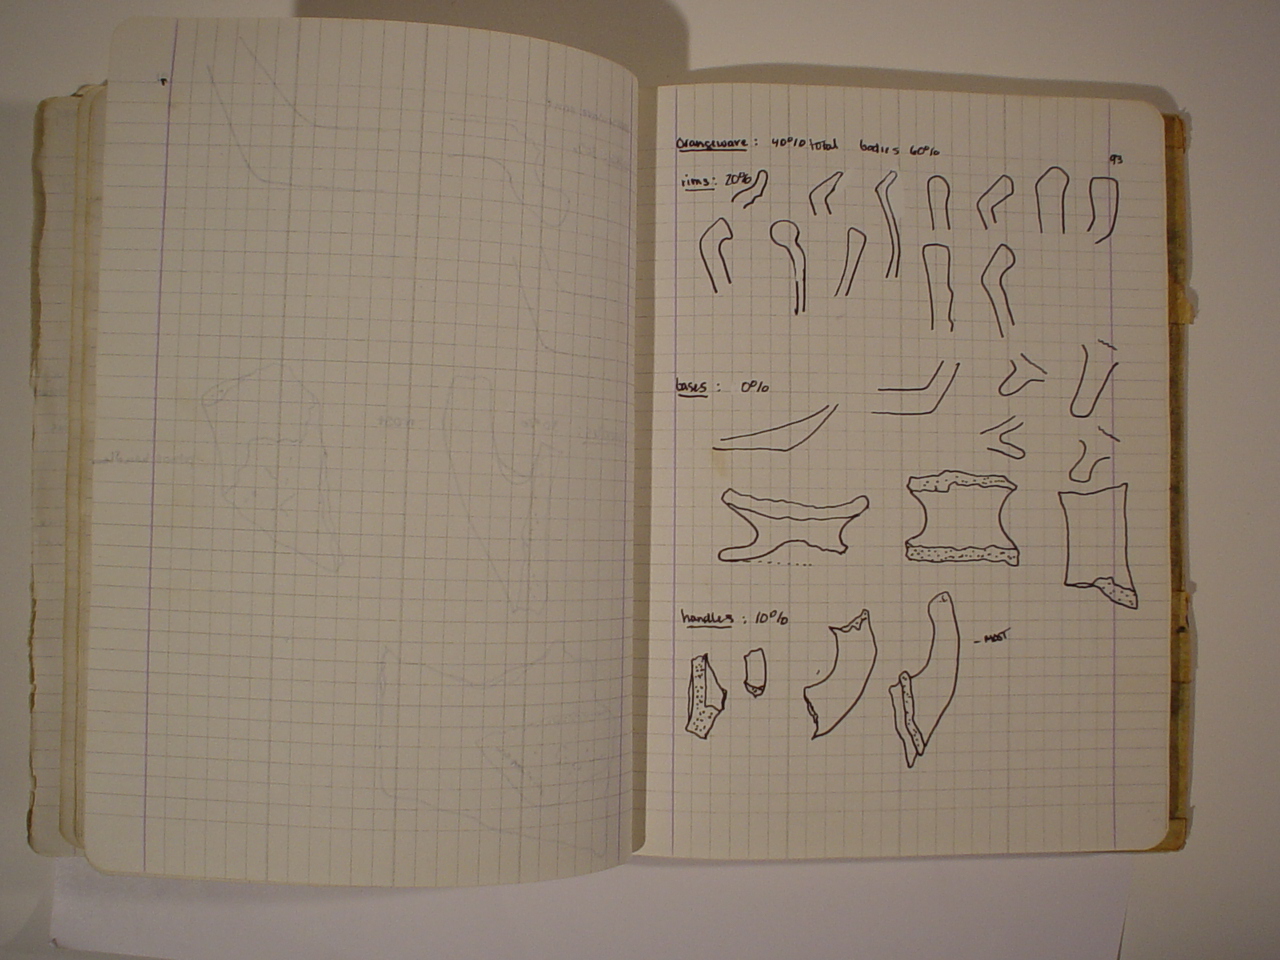 orangeware: 40% total bodies 60%
93
rims: 20%
bases: 0%
handles: 10%
- MOST